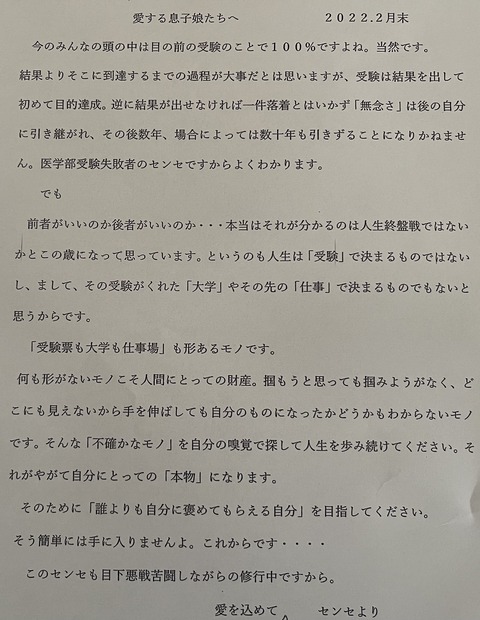 愛する息子娘たちへ　2022.2月末
今のみんなの頭の中は目の前の受験のことで100％ですよね。当然です。
結果よりそこに到達するまでの過程が大事だとは思いますが、受験は結果を出して
初めて目的達成。逆に結果が出せなければ一件落着とはいかず「無念さ」は後の自分
に引き継がれ、その後数年、場合によっては数十年も引きずることになりかねませ
ん。医学部受験失敗者のセンセですからよくわかります。
でも
前者がいいのか後者がいいのか・・・本当はそれが分かるのは人生終盤戦ではない
かとこの歳になって思っています。というのも人生は「受験」で決まるものではない
し、まして、その受験がくれた「大学」やその先の「仕事」で決まるものでもないと
思うからです。
「受験票も大学も仕事場」も形あるモノです。
何も形がないモノこそ人間にとっての財産。掴もうと思っても掴みようがなく、ど
こにも見えないから手を伸ばしても自分のものになったかどうかもわからないモノ
です。そんな「不確かなモノ」を自分の嗅覚で探して人生を歩み続けてください。そ
れがやがて自分にとっての「本物」になります。
そのために「誰よりも自分に褒めてもらえる自分」を目指してください。
そう簡単には手に入りませんよ。これからです・・・・
このセンセも目下悪戦苦闘しながらの修行中ですから。
愛を込めて　センセより